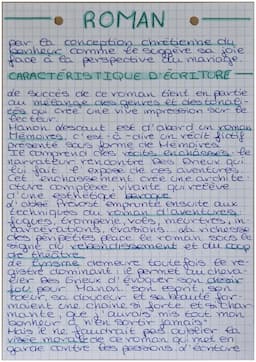 ROMAN
par la conception chrétienne du
bonheur comme le suggère sa joie
face à la perspective du mariage.
CARACTÉRISTIQUE D'ÉCRITURE
Le succès de ce roman tient en partie
au mélange des genres et des tonali-
tés qui crée une vive impression sur le
lecteur.
Manon Lescaut est d'abord un roman
Mémoires, c'est à dire un récit fictif
présenté sous forme de Mémoires.
Il comprend des récits enchâssés: le
narrateur rencontre Des Grieux qui
lui fait le exposé de ces aventures
et l'enchâssement crée une archite
cture complexe, vivante qui relève
d'une esthétique baroque
L'abbé Prévost emprunte ensuite aux
techniques du roman d'aventures,
fugues, tromperie, vols, meurtres, in
carcérations, évasions. La richesse
des péripéties place le roman sous le
signe du rebondissement et du coup
de théâtre.
Le lyrisme demeure toutefois le re-
gistre dominant: il permet au cheva-
lier Des Grieux d'évoquer son désar
pour Manon: son esprit, son
cœur, sa douceur et sa beauté for-
maient une chaîne si forte et si char-
mante, que j'aurais mis tout mon
bonheur à n'en sortir jamais.
Mais il ne faudrait pas oublier la
visée morale de ce roman qui met en
garde contre les passions d'écriture